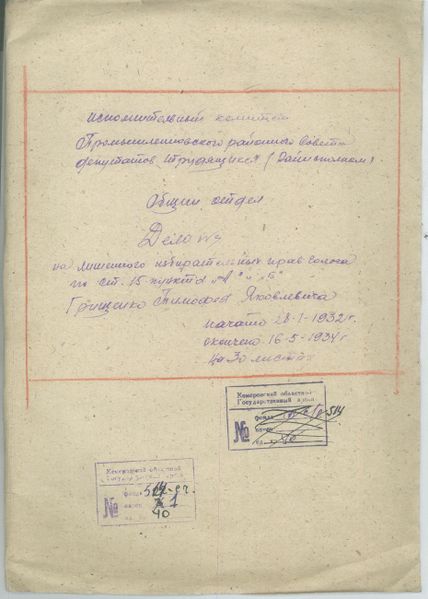 исполнительный комитет
Промышленновского районного Совета
депутатов трудящихся (Райисполком)
Общий отдел
Дело №
на лишенного избирательных прав голоса
по ст. 15 пункта „А" и „Б"
Грищенко Тимофея Яковлевича
начато 28-I-1932 г.
окончено 16-5-1934 г
на 30 листах
Кемеровский областной
Государственный архив
фонд 514
№
Кемеровский областной
Государственный архив
фонд
№ 1
40